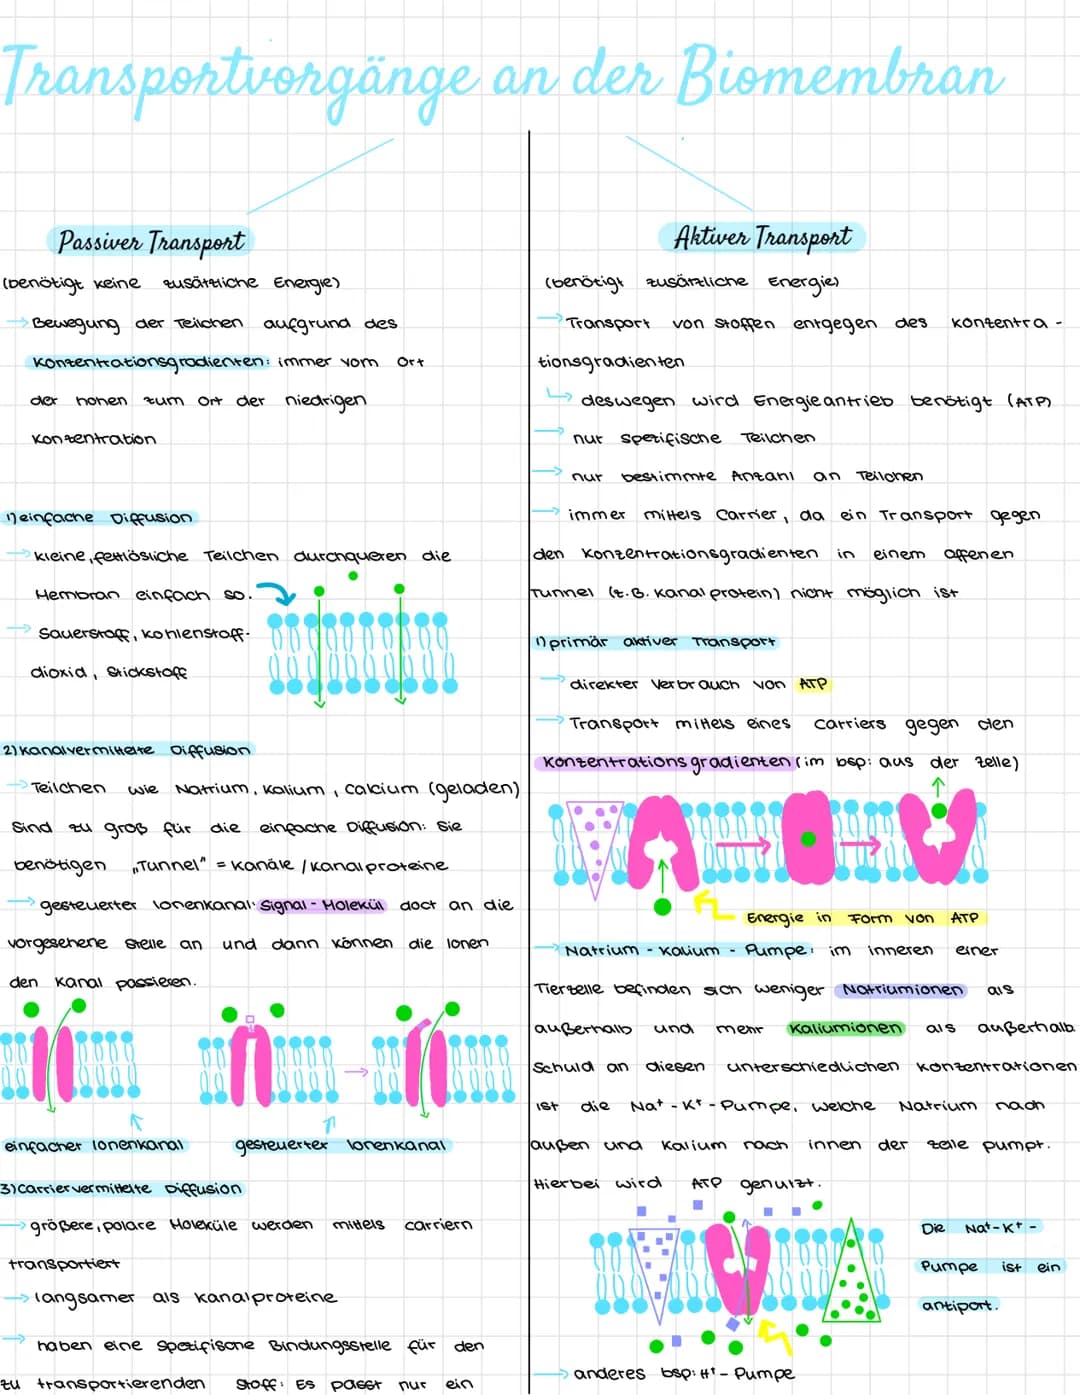 Transportvorgänge an der Biomembran
Passiver Transport
(benötigt keine zusätzliche Energie)
→ Bewegung der Teilchen aufgrund des
Konzentrationsgradienten: immer vom Ort
der hohen zum Ort der niedrigen
Konzentration
1) einfache Diffusion
→ kleine, fettlösliche Teilchen durchqueren die
Membran einfach so.
→ Sauerstoff, kohlenstoff-
dioxid, Stickstoff
2) kanalvermittelte Diffusion
→ Teilchen wie Natrium, Kalium, Calcium (geladen)
sind zu groß für die einfache Diffusion: Sie
benötigen „Tunnel" = Kanäle / Kanalproteine
→ gesteuerter Ionenkanal: Signal-Molekül doct an die
vorgesehene Stelle an und dann können die Ionen
den Kanal passieren.
einfacher Ionenkanal
gesteuerter Ionenkanal
3) Carriervermittelte Diffusion
→ größere, polare Moleküle werden mittels carriern
transportiert
→ langsamer als Kanalproteine
→ haben eine spezifische Bindungsstelle für den
zu transportierenden Stoff: Es passt nur ein
Aktiver Transport
(benötigt zusärzliche Energie)
→ Transport von Stoffen entgegen des Konzentra-
tionsgradienten
↳ deswegen wird Energieantrieb benötigt (ATP)
→ nur spezifische Teilchen
→ nur bestimmte Anzahl an Teilchen
→ immer mittels Carrier, da ein Transport gegen
den Konzentrationsgradienten in einem offenen
Tunnel (z.B. Kanalprotein) nicht möglich ist
1) primär aktiver Transport
→ direkter Verbrauch von ATP
→ Transport mittels eines Carriers gegen den
Konzentrationsgradienten (im bsp: aus der Zelle)
Energie in Form von ATP
→ Natrium-Kalium-Pumpe: im inneren einer
Tierzelle befinden sich weniger Natriumionen als
außerhalb und mehr Kaliumionen als außerhalb.
Schuld an diesen unterschiedlichen Konzentrationen
ist die Na⁺-K⁺-Pumpe, welche Natrium nach
außen und Kalium nach innen der Zelle pumpt.
Hierbei wird ATP genutzt.
Die Na⁺-K⁺-
Pumpe ist ein
antiport.
→ anderes bsp: H⁺-Pumpe